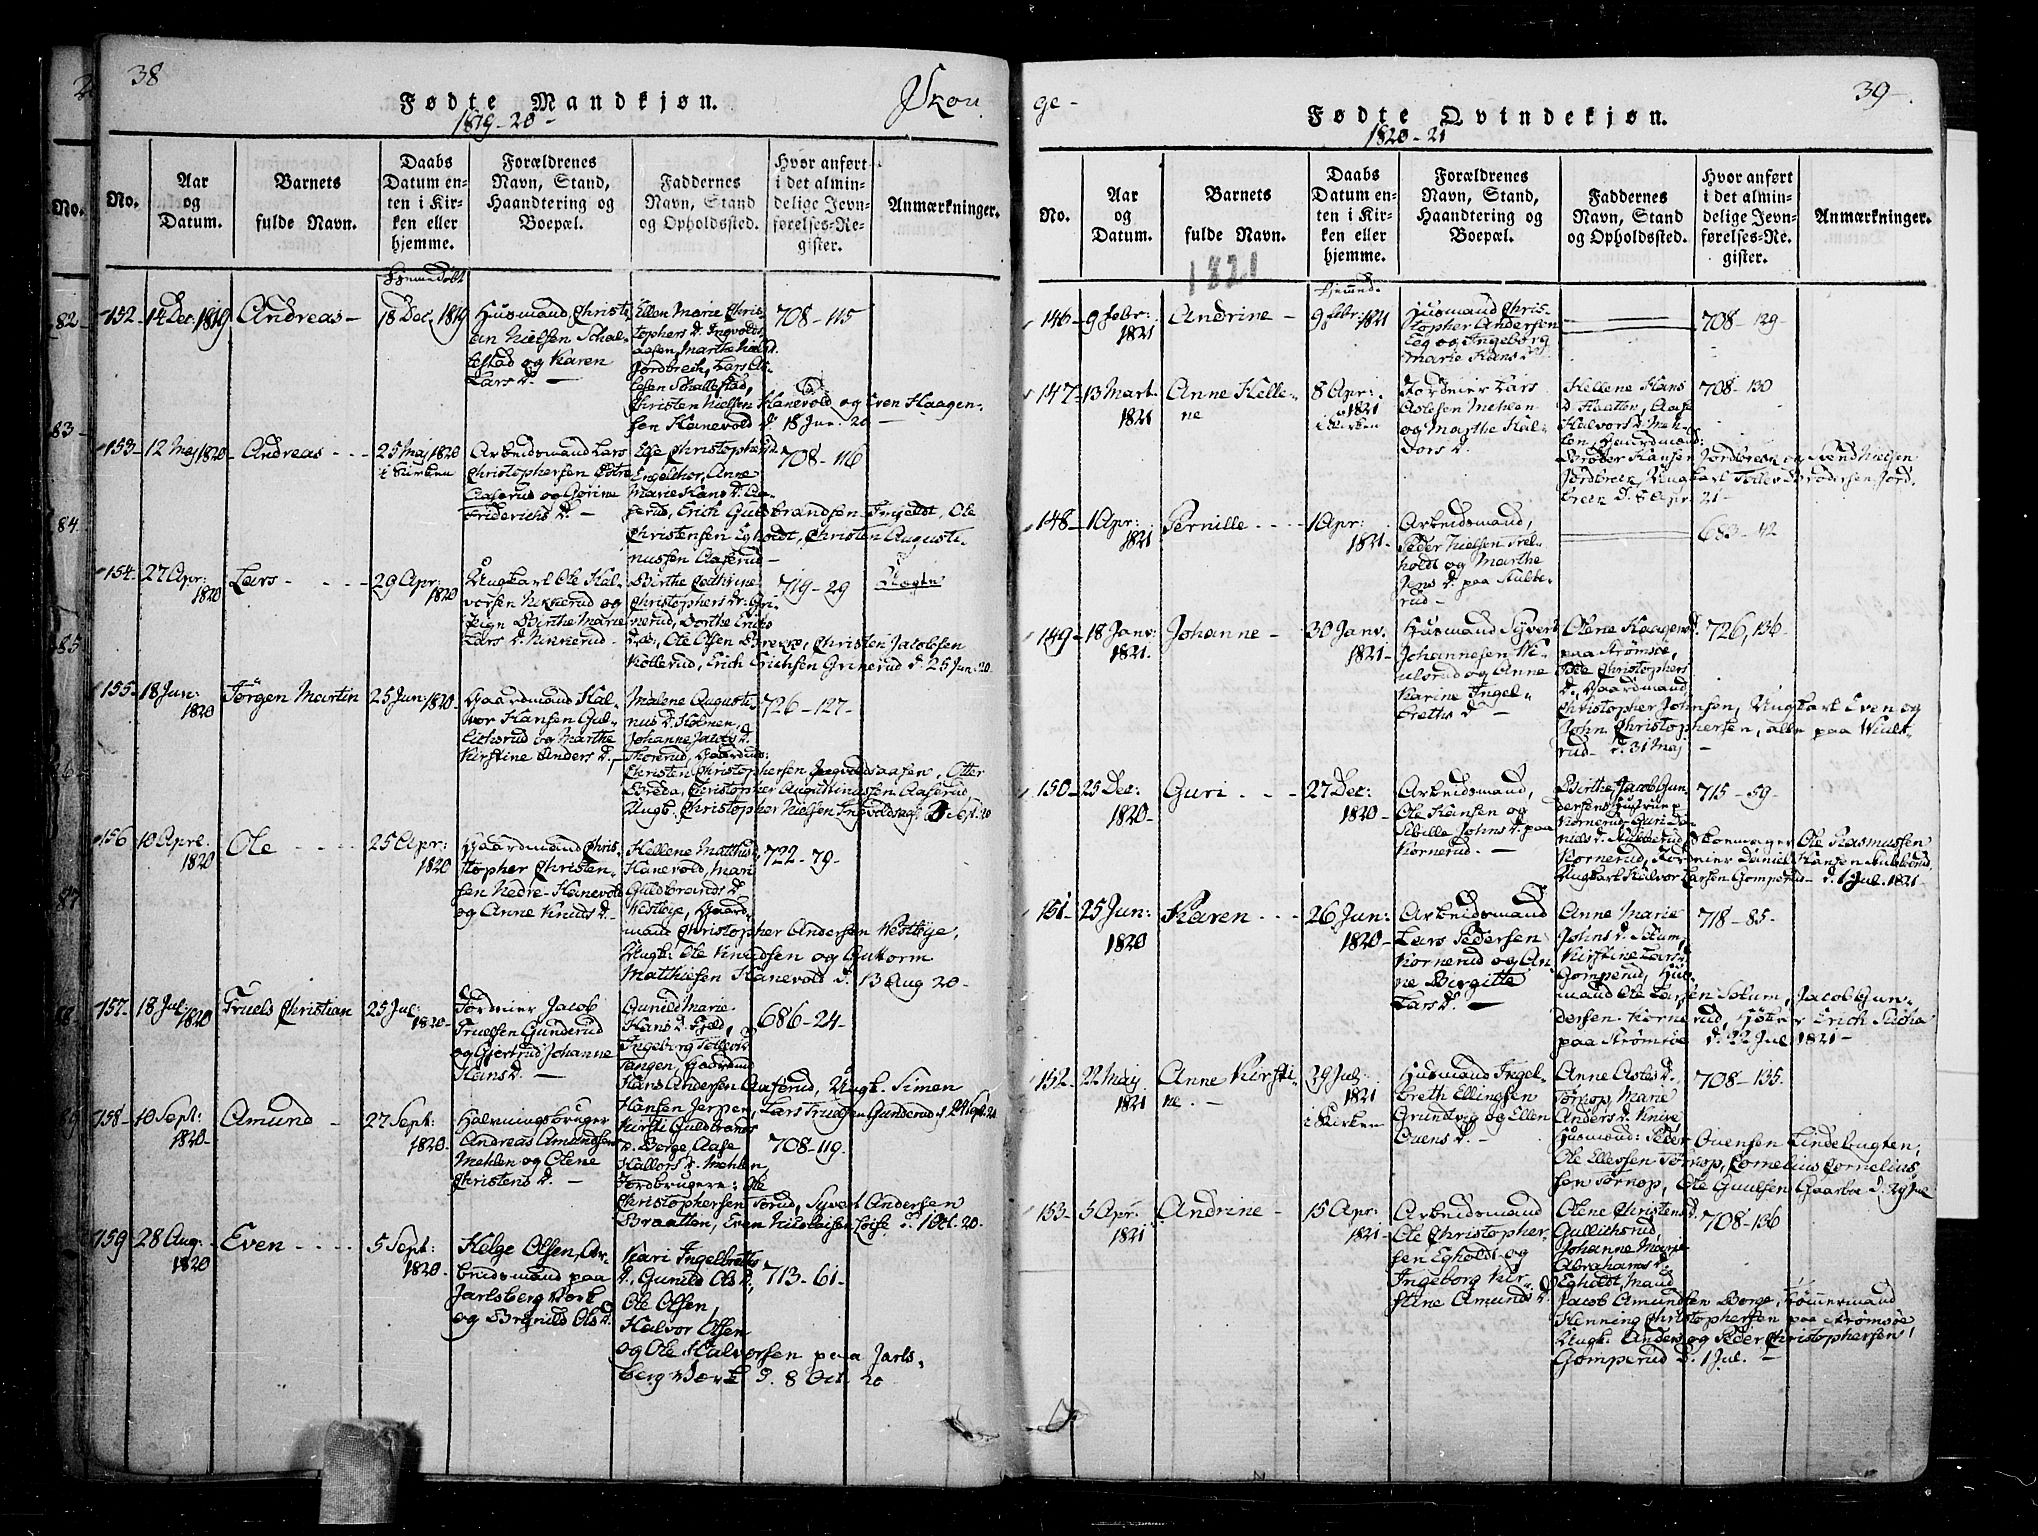 38
Fødte Mandkjøn.
1819-20-
Skou
No.
Aar og Datum.
Barnets fulde Navn.
Daabs Datum enten i Kirken eller hjemme.
Forældrenes Navn, Stand, Haandtering og Boepæl.
Faddernes Navn, Stand og Opholdssted.
Hvor anført i det almindelige Jevnførelses-Register.
Anmærkninger.
152- 14 Dec: 1819 Andreas-
Hjemmedøbt
18 Dec. 1819
Husmand Christian Nielsen Schallestad og Karen Lars D. -
Ellen Marie Christophers D. Ingvoldsaasen, Marthe Niels D. Jordbrech, Lars Schallestad, Christen Nielsen Hanevold og Even Haagensen Hanevold D. 18 Jun. 20-
708-115
153- 12 Maj 1820 Andreas - - -
25 Maj 1820 i Kirken
Arbeidsmand Lars Christophersen Østre Aaserud og Gorine Friderichs D. -
Christophers D. Engelthor, Anne Marie Hans D. Aaserud, Erich Gulbrandsen Ole Christensen Egholdt, Christen Augustinussen Aaserud -
708-116
154- 27 Apr: 1820 Lars - - - -
29 Apr: 1820
Ungkarl Ole Halvorsen Nikkerud og Pign Birthe Marie Lars D. Nikkerud -
Birthe Cathrine Christophers D. Grinerud, Dorthe Erichs D. Ole Olsen Brekke, Christen Jacobsen Kollerud, Erich Erichsen Grinerud D. 25 Jun. 20
719-29
155- 18 Jun: 1820 Jörgen Martin
25 Jun: 1820-
Gaardmand Halvor Hansen Gullichsrud og Marthe Kirstine Anders D. -
Malene Augustinus D. Holmen, Johanne Jacobs D. Thorrud, Gaardmd: Christen Christophersen Ingvoldsaasen, Otter Breda, Christopher Augustinussen Aaserud, Ungk. Christopher Nielsen Ingvoldsaas D. 3 Sept. 20
726-127-
156 10 April 1820 Ole - - - -
25 Apr: 1820
Gaardmand Christopher Christensen Nedre Hanevold og Anne Knuds D. -
Hellene Matthis D. Hanevold, Mari Guldbrands D. Westbye, Gaardmand Christopher Andersen Westbye, Ungk: Ole Knudsen og Guttorm Matthiesen Hanevold D. 13 Aug 20-
722-79-
157- 18 Jul: 1820 Truels Christian
25 Jul: 1820-
Jordeier Jacob Truelsen Gunderud og Gjertrud Johanne Hans D. -
Gunild Marie Hans D. Fjeld, Ingeborg Tollevs D. Tangen, Gaardmd Hans Andersen Aaserud, Ungk. Simen Hansen Jerpen, Lars Truelsen Gunderud D. 24 Sept. 20
686-24-
158- 10 Sept: 1820- Amund -
27 Sept: 1820
Halvningsbruger Andreas Amundsen Mehlen og Olene Christens D. -
Kirsti Guldbrands D. Borge, Aase Hallvors D. Mehlen, Jordbrugere: Ole Christophersen Torud, Syvert Andersen Braatten, Even Nicolaisen Loise, D. 1 Oct. 20-
708-119-
159 28 Aug: 1820 Even - - - -
5 Sept: 1820-
Helge Olsen, Arbeidsmand paa Jarlsberg Værk og Brynild Ols D.
Kari Ingelbreths D., Gunild Ols D., Ole Olsen, Halvor Olsen og Ole Halvorsen paa Jarlsberg Værk D. 8 Oct. 20
713-61-
ge-
39-
Fødte Qvindekjøn.
1820-21
No.
Aar og Datum.
Barnets fulde Navn.
Daabs Datum enten i Kirken eller hjemme.
Forældrenes Navn, Stand, Haandtering og Boepæl.
Faddernes Navn, Stand og Opholdssted.
Hvor anført i det almindelige Jevnførelses-Register.
Anmærkninger.
1821
146- 9 Febr: 1821 Andrine -
Hjemmed:
9 Febr: 1821
Husmand Christopher Andersen Eeg og Ingeborg Marie Hans D.
708-129
147- 13 Mart. 1821 Anne Hellene
8 Apr: 1821 i Kirken
Jordeier Lars Aslesen Mehlen og Marthe Halvors D.
Hellene Hans D. Haatten, Aase Halvors D. Mehlen, Gaardmand: Broder Hansen Jordbreck og Svend Nielsen Jordbreck, Ungkarl Tollef Brodersen Jordbreck D. 8 Apr. 21-
708-130
148- 1 Apr: 1821 Pernille - - - -
1 Apr: 1821-
Arbeidsmand, Peder Nielsen Trelholdt og Marthe Jens D. paa Kulberud -
683-42
149- 18 Janv: 1821. Johanne -
30 Janv. 1821-
Husmand Syvert Johannesen Wiulsrud og Anne Karine Ingelbreths D. -
Olene Haagens D. paa Strømsøe, Christophers D., Gaardmand Christopher Johnsen, Ungkarl Even og John Christophersen, alle paa Wiulsrud - D. 31 Maj -
726,136-
150- 25 Dec: 1820- Guri - - -
27 Dec: 1820-
Arbeidsmand, Ole Hansen og Sibille Johns D. paa Kornerud. -
Birthe, Jacob Gundersens Hustrue p. Kornerud, Guri Daniels D. Kulberud, Skomager Ole Rasmussen Kornerud, Jordeier Daniel Hansen Kulberud, Ungkarl Halvor Larsen Gomperud - D. 1 Jul. 1821-
715-59-
151- 25 Jun: 1820 Karen - - -
26 Jun: 1820-
Arbeidsmand Lars Pedersen Kornerud og Anne Birgitte Lars D. -
Anne Marie Johns D. Solum, Kirstine Lars D. Gomperud, Husmand Ole Larsen Solum, Jacob Gundersen Kornerud, Erich paa Strømsøe D. 22 Jul. 1821-
718-85-
152- 22 Maj 1821 Anne Kirstine. -
29 Jul: 1821 i Kirken
Husmand Ingelbreth Ellingsen Grundvig og Ellen Ouens D. -
Anne Asles D. Torkop, Mari Anders D. Knive, Husmænd: Peder Ouensen Lindebugten, Ole Ellevsen Torkop, Cornelius Corneliussen Torkop, Ole Guulsen Gaarbo D. 29 Jul
708-135.
153- 5 Apr. 1821 Andrine -
15 Apr: 1821-
Arbeidsmand Ole Christophersen Egholdt og Ingeborg Kirstine Amunds D.
Olene Christens D. Gullichsrud, Johanne Marie Abrahams D. Egholdt, Mand Jacob Amundsen Borge, Tømmermand Henning Christophersen paa Strømsøe Ungk. Anders og Peder Christophersens Gomperud D. 1 Jul. -
708-136
82
83
84
85
86
87
88
89